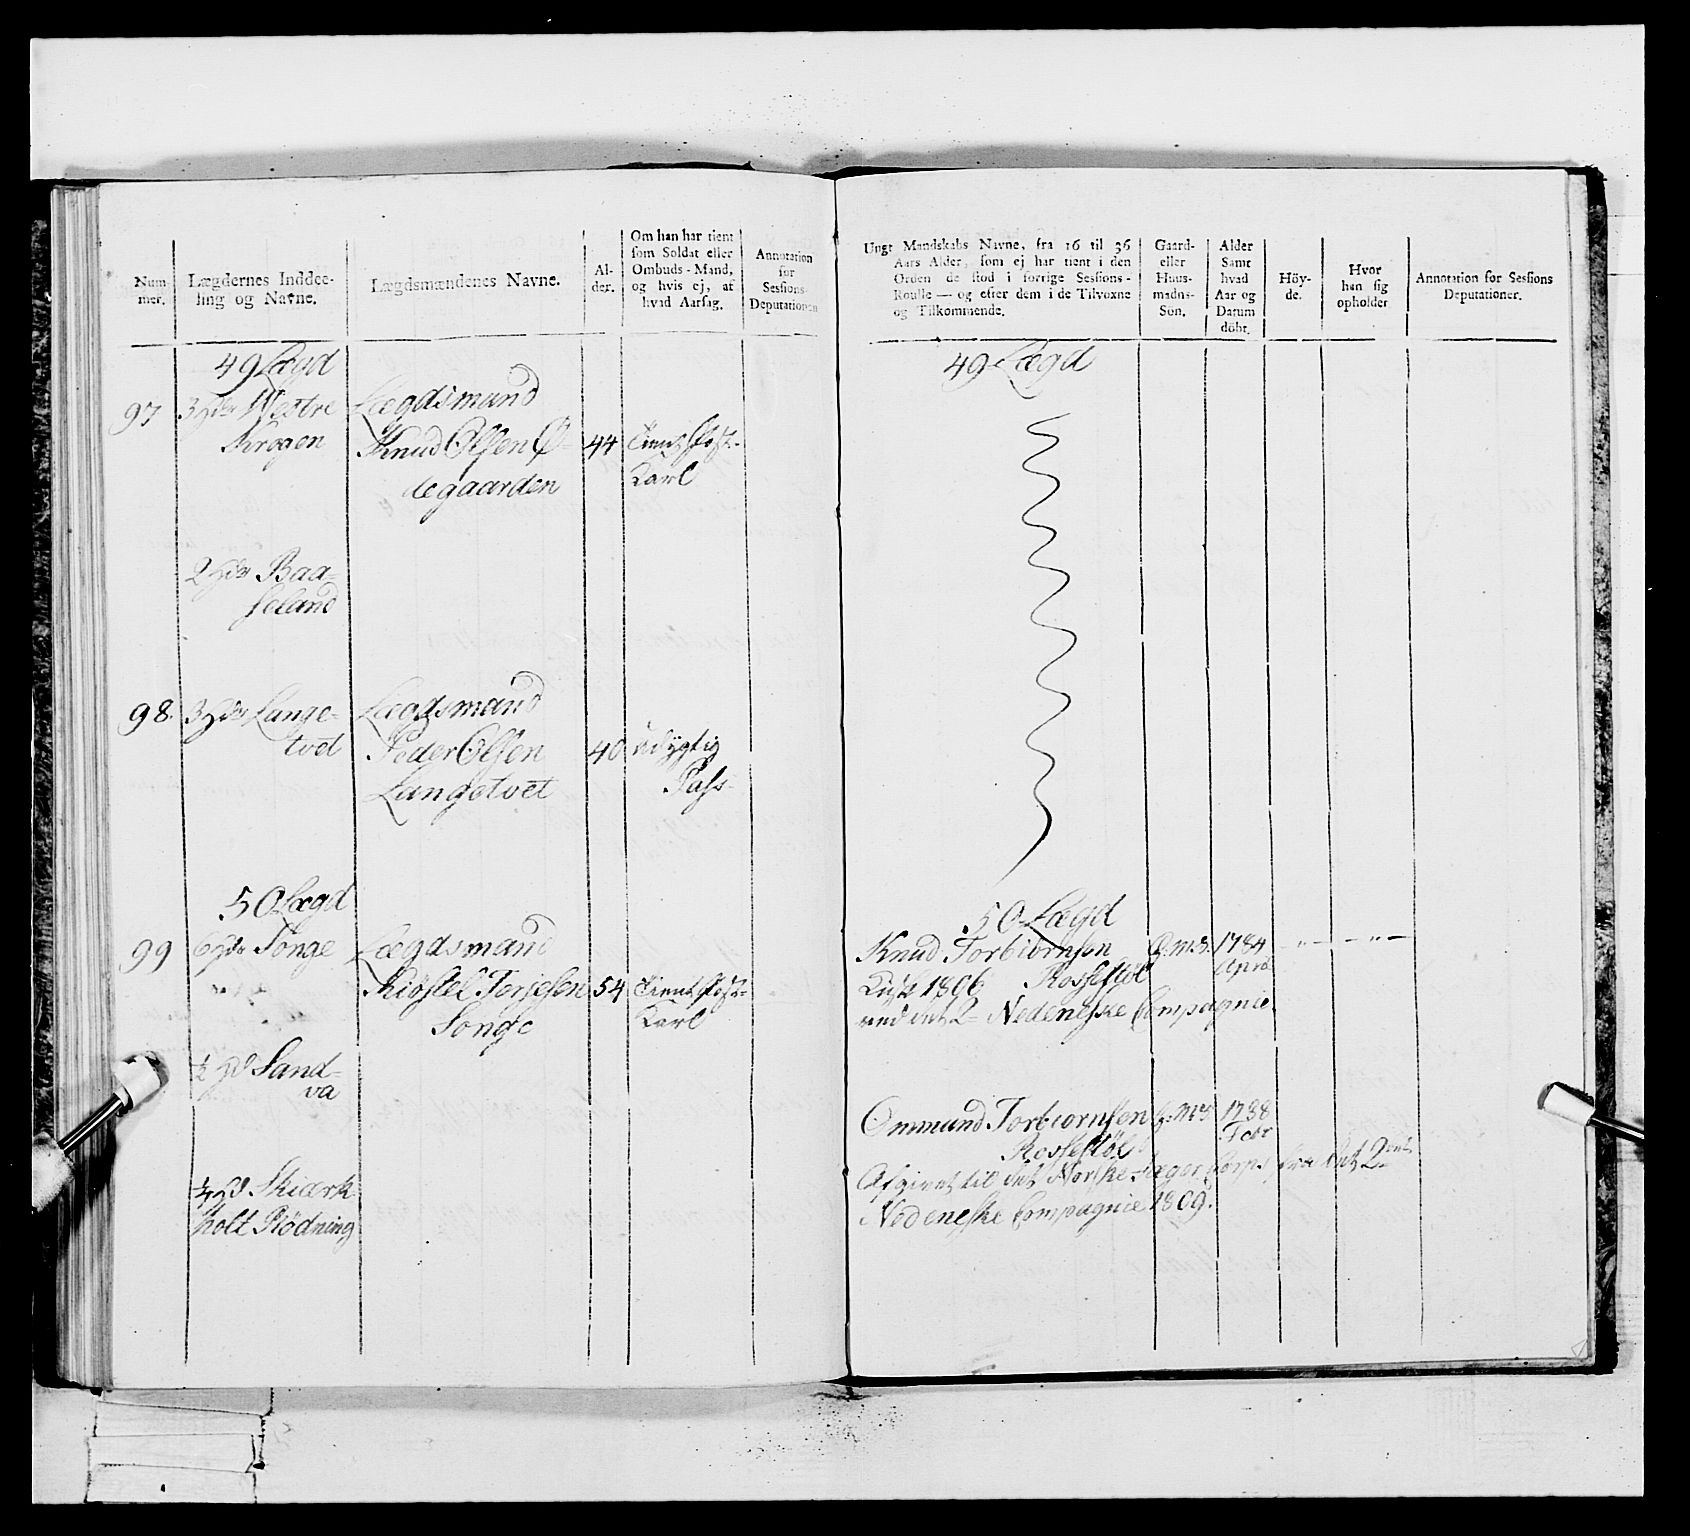 Num
mer.
Lægdernes Inddee-
ling og Navne.
Lægdsmændenes Navne.
Al-
der.
Om han har tient
som Soldat eller
Ombuds-Mand,
og hvis ej, af
hvad Aarsag.
Annotation
for
Sessions-
Deputationen
49 Lægd
97 3 Hder Westre
Krogen
Lægdsmand
Knud Olsen Ø-
degaarden
44
Tient
Karl
2 Hder Baa-
seland
98. 3 Hder Lange-
tvet
Lægdsmand
Peder Olsen
Langetvet
40
udygtig
Pass
50 Lægd
99 6 Hder Songe
Lægdsmand
Kiøstel Terjesen
Songe
54
Tient
Karl
½ Hd Sand-
va
¼ Hd Skiærk-
holt Rødning
Ungt Mandskabs Navne, fra 16 til 36
Aars Alder, som ej har tient i den
Orden de stod i forrige Sessions-
Roulle — og efter dem i de Tilvoxne
og Tilkommende.
Gaard-
eller
Huus-
mands-
Sön.
Alder
Samt
hvad
Aar og
Datum
döbt.
Höy-
de.
Hvor
han sig
opholder
Annotation for Sessions
Deputationer.
49 Lægd
50 Lægd
Knud Torbiørnsen 1784
Rosseltøl April
1806
ved det 2- Nedeneske Compagnie
Ommund Torbiørnsen 1788
Rosseltøl Febr
Afgivet til det Norske Jæger Corps fra det 2det
Nedeneske Compagnie 1809.